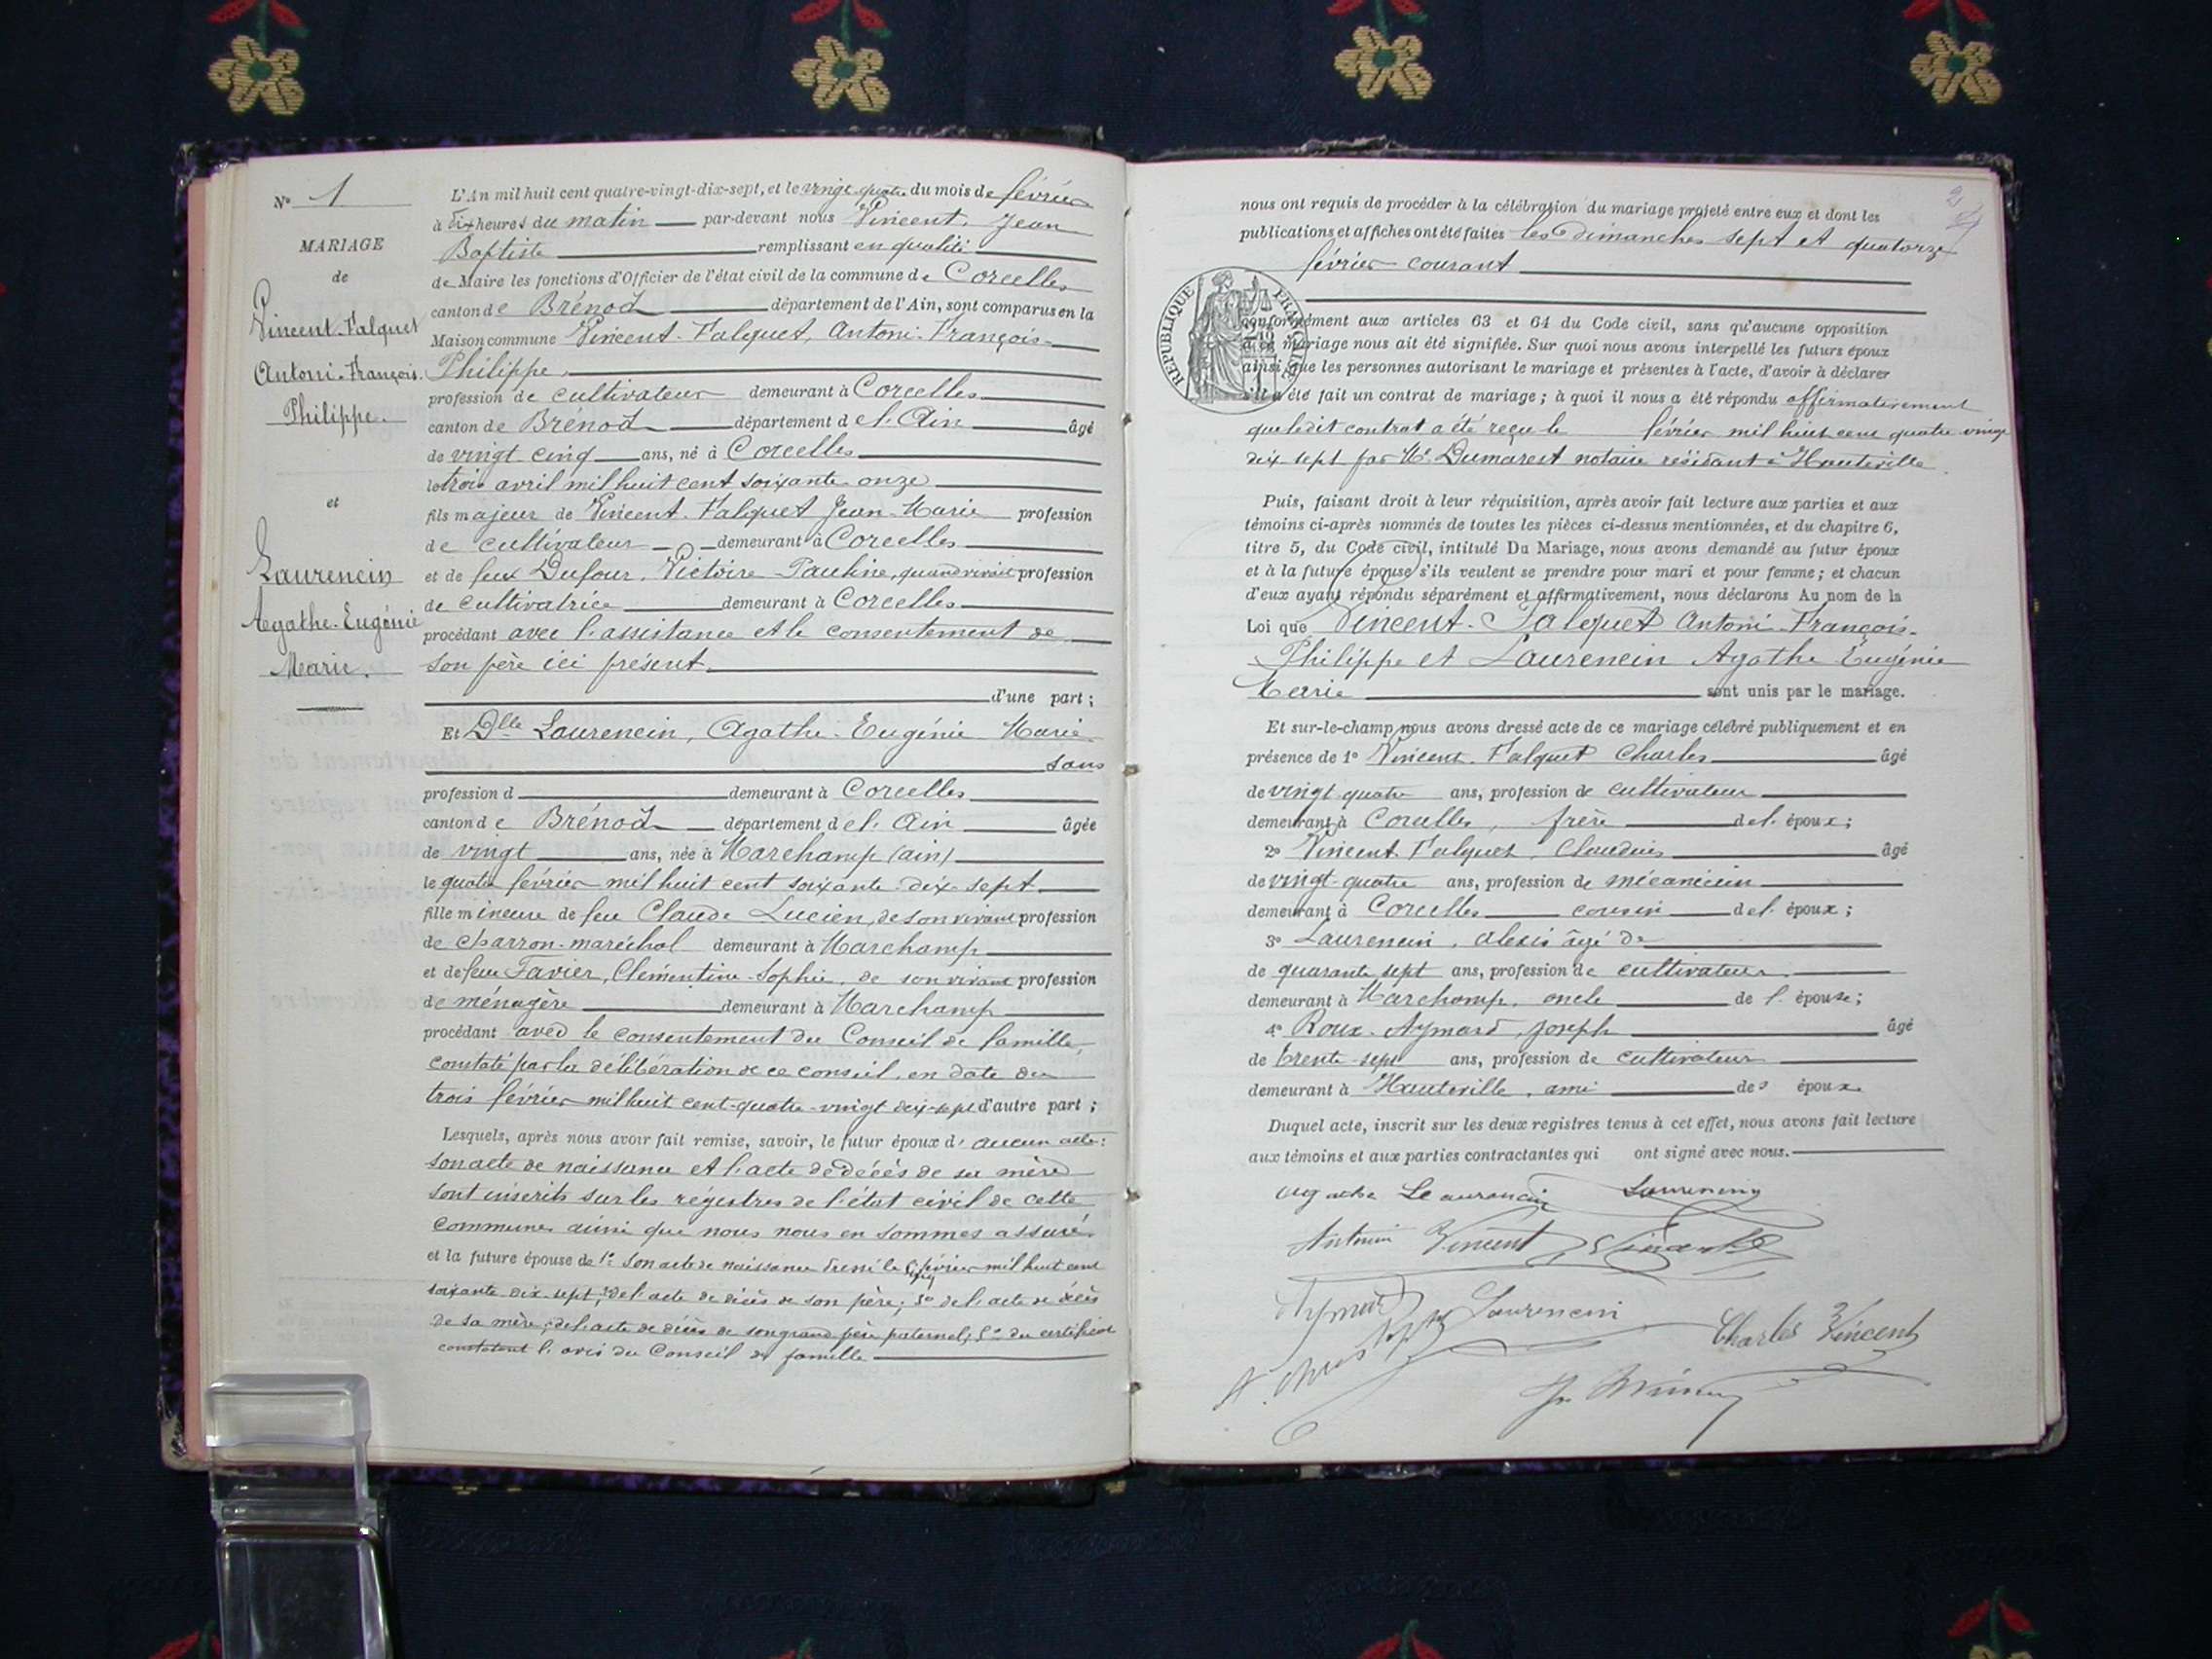 Nº 1
MARIAGE
de
Vincent-Falquet
Antoni-François
Philippe.
et
Laurencin
Agathe-Eugénie
Marie.
L'An mil huit cent quatre-vingt-dix-sept, et le vingt-quatre du mois de février
à dix heures du matin par-devant nous Vincent, Jean
Baptiste remplissant en qualité
de Maire les fonctions d'Officier de l'état civil de la commune de Corcelles
canton de Brénod département de l'Ain, sont comparus en la
Maison commune Vincent-Falquet, Antoni-François-
Philippe,
profession de cultivateur demeurant à Corcelles
canton de Brénod département de l'Ain âgé
de vingt-cinq ans, né à Corcelles
le trois avril mil huit cent soixante onze
fils majeur de Vincent-Falquet Jean-Marie profession
de cultivateur demeurant à Corcelles
et de feue Dufour, Victoire-Pauline, quand vivait profession
de cultivatrice demeurant à Corcelles
procédant avec l'assistance et le consentement de
son père ici présent
d'une part ;
Et Dlle Laurencin, Agathe-Eugénie Marie
sans
profession d demeurant à Corcelles
canton de Brénod département de l'Ain âgée
de vingt ans, née à Marchamp (ain)
le quatre février mil huit cent soixante-dix-sept
fille mineure de feu Claude Lucien, de son vivant profession
de charron-maréchal demeurant à Marchamp
et de feue Favier, Clémentine-Sophie, de son vivant profession
de ménagère demeurant à Marchamp
procédant avec le consentement du Conseil de famille,
constaté par la délibération de ce conseil, en date du
trois février mil huit cent-quatre-vingt dix-sept d'autre part ;
Lesquels, après nous avoir fait remise, savoir, le futur époux d'aucun acte :
son acte de naissance et l'acte de décès de sa mère
sont inscrits sur les régistres de l'état civil de cette
commune ainsi que nous nous en sommes assuré.
et la future épouse de 1º son acte de naissance dressé le cinq février mil huit cent
soixante dix-sept ; 2º de l'acte de décès de son père ; 3º de l'acte de décès
de sa mère ; de l'acte de décès de son grand père paternel ; 5º du certificat
constatant l'avis du Conseil de famille
nous ont requis de procéder à la célébration du mariage projeté entre eux et dont les
publications et affiches ont été faites les dimanches sept et quatorze
février courant
RÉPUBLIQUE FRANÇAISE
conformément aux articles 63 et 64 du Code civil, sans qu'aucune opposition
à ce mariage nous ait été signifiée. Sur quoi nous avons interpellé les futurs époux
ainsi que les personnes autorisant le mariage et présentes à l'acte, d'avoir à déclarer
s'il a été fait un contrat de mariage ; à quoi il nous a été répondu affirmativement
que ledit contrat a été reçu le février mil huit cent quatre vingt
dix-sept par Me Dumarest notaire résidant à Hauteville
Puis, faisant droit à leur réquisition, après avoir fait lecture aux parties et aux
témoins ci-après nommés de toutes les pièces ci-dessus mentionnées, et du chapitre 6,
titre 5, du Code civil, intitulé Du Mariage, nous avons demandé au futur époux
et à la future épouse s'ils veulent se prendre pour mari et pour femme ; et chacun
d'eux ayant répondu séparément et affirmativement, nous déclarons Au nom de la
Loi que Vincent-Falquet Antoni-François-
Philippe et Laurencin Agathe Eugénie
Marie sont unis par le mariage.
Et sur-le-champ nous avons dressé acte de ce mariage célébré publiquement et en
présence de 1º Vincent-Falquet Charles âgé
de vingt quatre ans, profession de cultivateur
demeurant à Corcelles, frère de l'époux ;
2º Vincent-Falquet, Claudius âgé
de vingt-quatre ans, profession de mécanicien
demeurant à Corcelles cousin de l'époux ;
3º Laurencin, alexis âgé de
de quarante sept ans, profession de cultivateur
demeurant à Marchamp, oncle de l'épouse ;
4º Roux-Aymard, joseph âgé
de trente-sept ans, profession de cultivateur
demeurant à Hauteville, ami des époux
Duquel acte, inscrit sur les deux registres tenus à cet effet, nous avons fait lecture
aux témoins et aux parties contractantes qui ont signé avec nous.
agathe Leaurancin Laurencin
Antonin Vincent Vincent
Aymard Laurencin
Charles Vincent